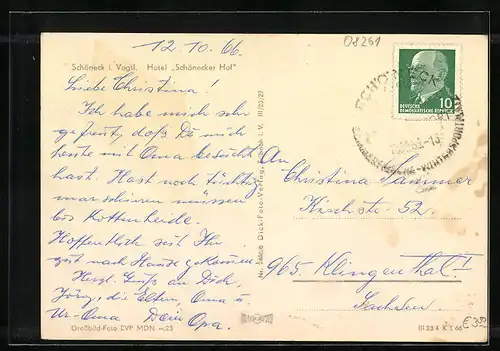 12. 10. 66
08261
Schöneck i. Vogtl. Hotel „Schönecker Hof"
Liebe Christina!
Ich habe mich sehr
gefreut, daß Du mich
heute mit Oma besucht
hast. Hast noch tüchtig
marschieren müssen
bis Kottenheide.
Hoffentlich seid Ihr
gut nach Hause gekommen.
Herzl. Grüße an Dich,
Jörg, die Eltern, Oma u.
Ur-Oma Dein Opa.
Großbild-Foto EVP MDN -,23
Dick-Foto-Verlag, i. V. III/23/27
SCHÖNECK
SOMMERFRISCHE-WINTERSPORTPLATZ
10
DEUTSCHE
DEMOKRATISCHE REPUBLIK
An
Christina Sammer
Kirchstr. 52.
965 Klingenthal
Sachsen
III 23 4 K 1 66
€32